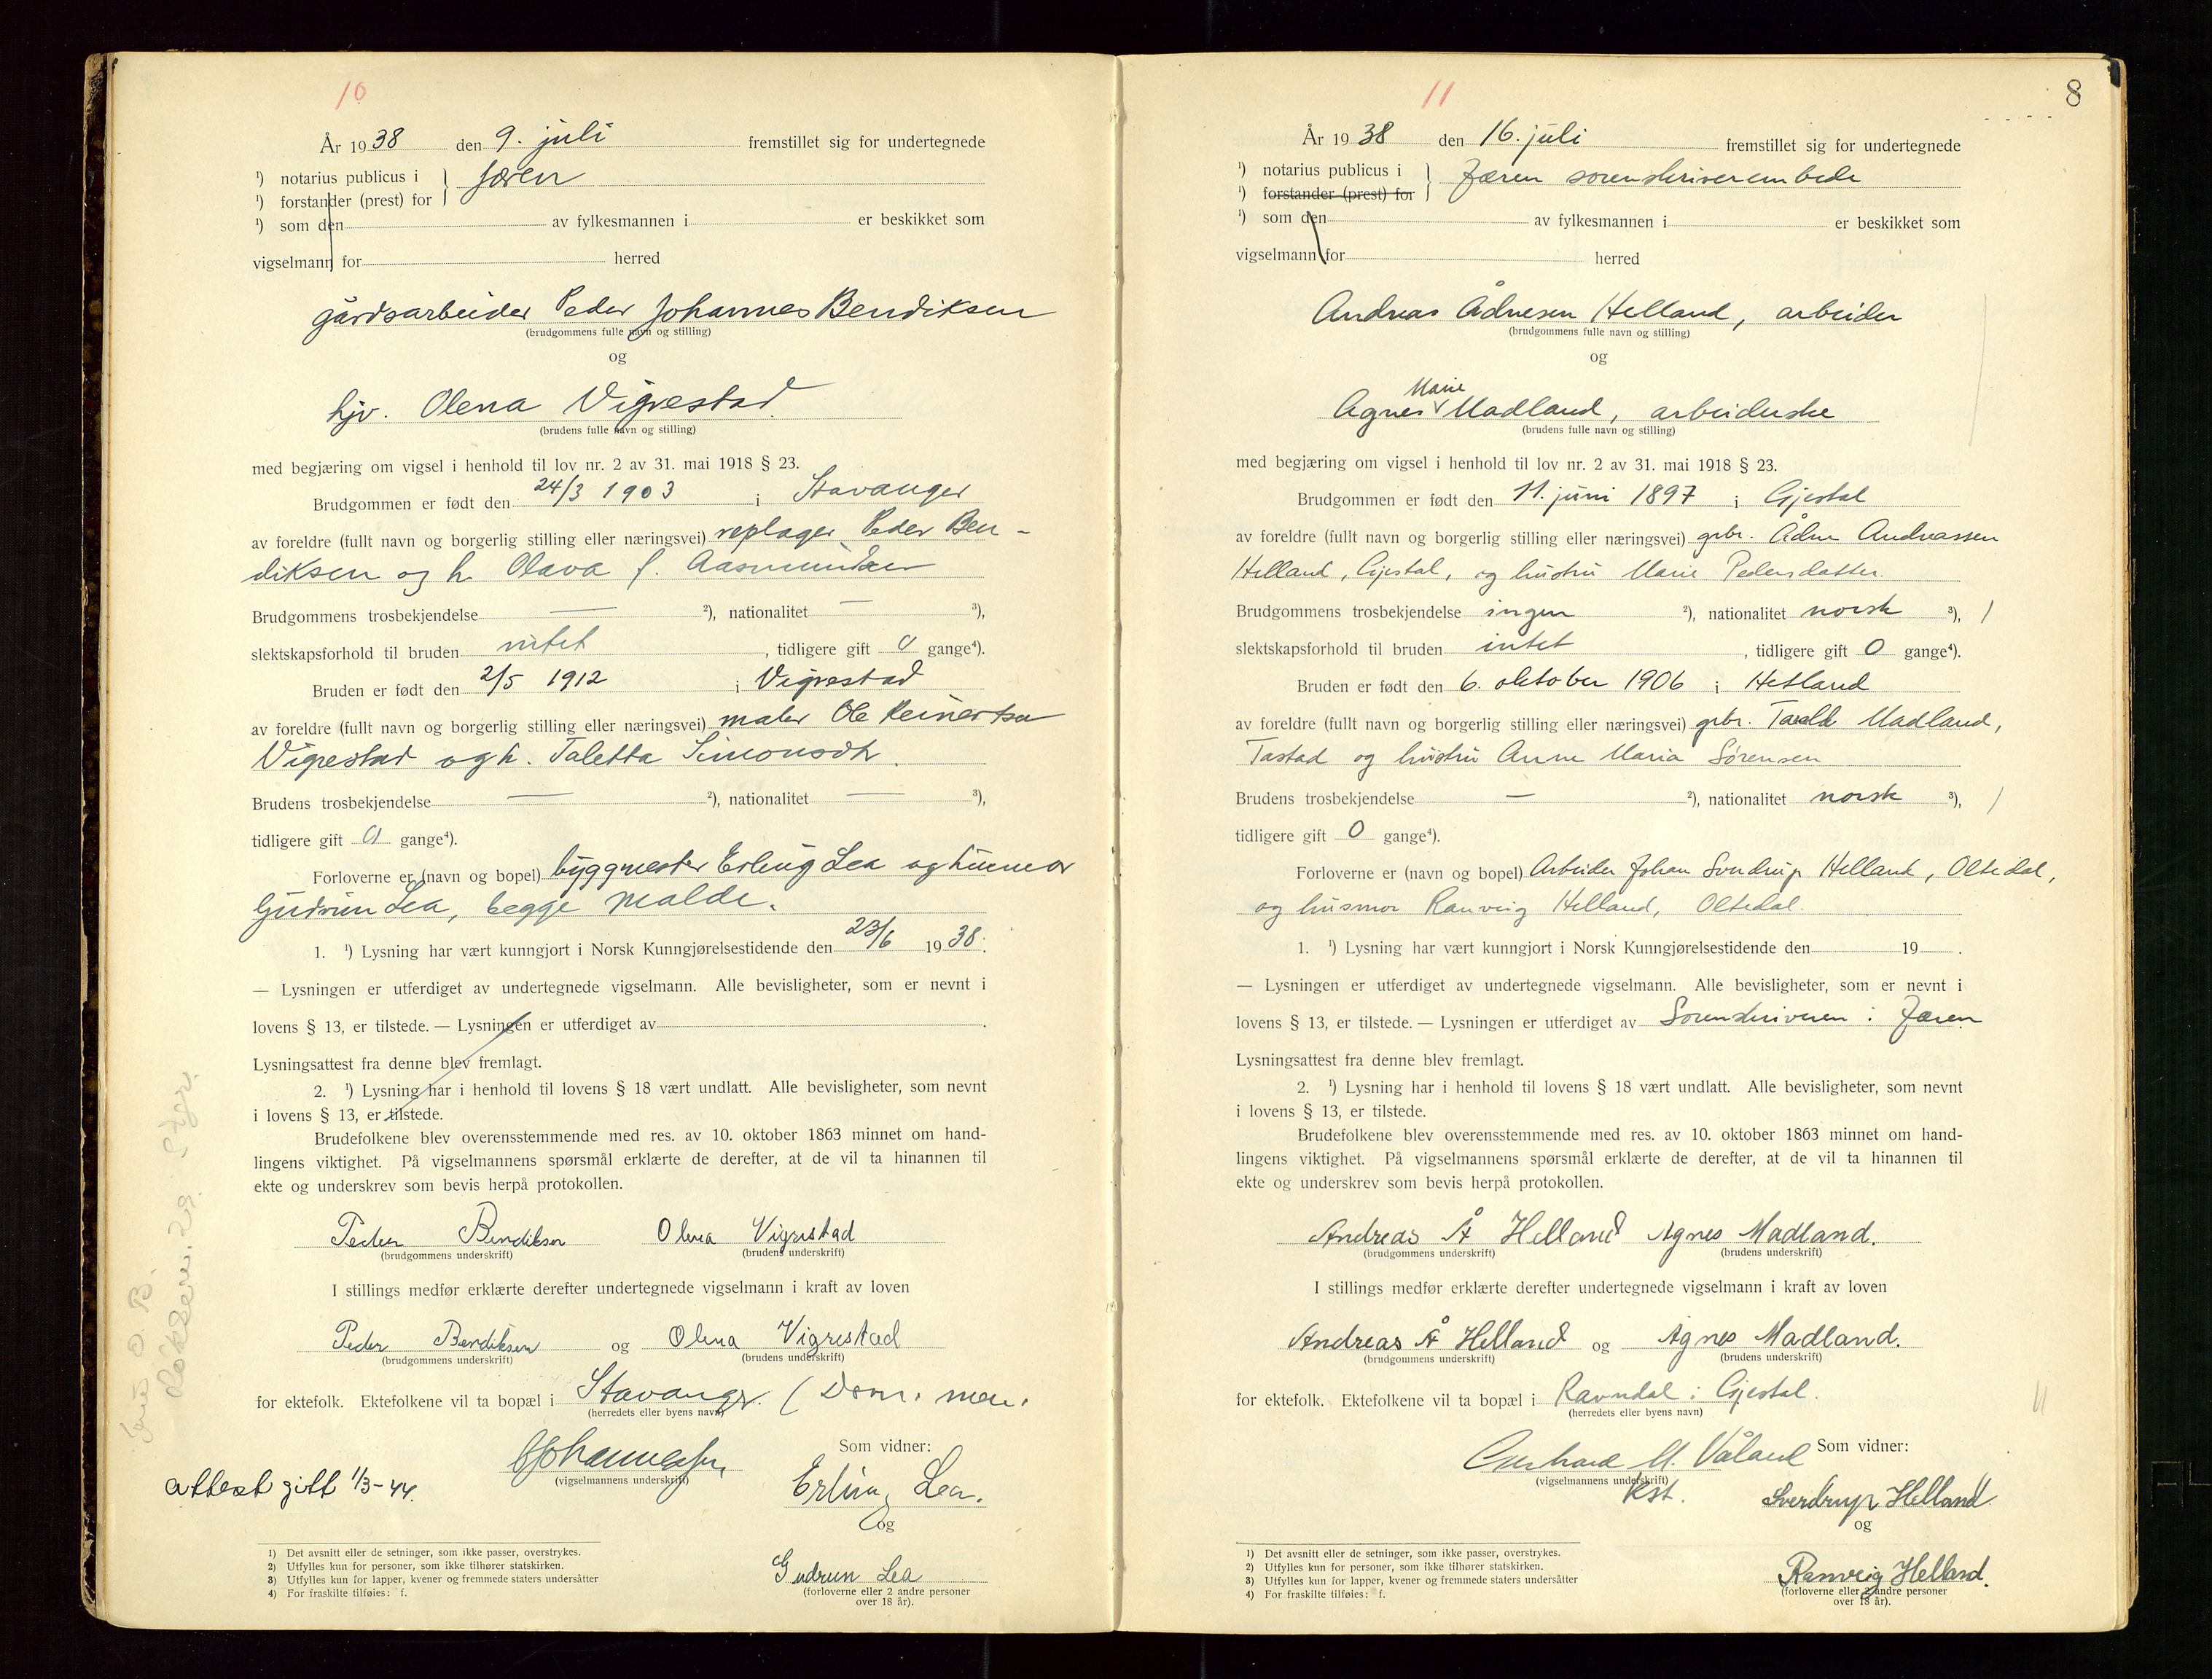 10
År 1938 den 9. juli fremstillet sig for undertegnede
¹) notarius publicus i } Jæren
¹) forstander (prest) for
¹) som den av fylkesmannen i er beskikket som
vigselmann for herred
gårdsarbeider Peder Johannes Bendiksen
(brudgommens fulle navn og stilling)
og
hjv. Olena Vigrestad
(brudens fulle navn og stilling)
med begjæring om vigsel i henhold til lov nr. 2 av 31. mai 1918 § 23.
Brudgommen er født den 24/3 1903 i Stavanger
av foreldre (fullt navn og borgerlig stilling eller næringsvei) repslager Peder Ben-
diksen og h. Olava f. Aasmundsen
Brudgommens trosbekjendelse — ²), nationalitet — ³),
slektskapsforhold til bruden intet, tidligere gift 0 gange⁴).
Bruden er født den 2/5 1912 i Vigrestad
av foreldre (fullt navn og borgerlig stilling eller næringsvei) maler Ole Reinertsen
Vigrestad og h. Taletta Simonsdtr.
Brudens trosbekjendelse — ²), nationalitet — ³),
tidligere gift 0 gange⁴).
Forloverne er (navn og bopel) byggmester Erling Lea og husmor
Gudrun Lea, begge Malde.
1. ¹) Lysning har vært kunngjort i Norsk Kunngjørelsestidende den 23/6 1938.
— Lysningen er utferdiget av undertegnede vigselmann. Alle bevisligheter, som er nevnt i
lovens § 13, er tilstede. — Lysningen er utferdiget av .
Lysningsattest fra denne blev fremlagt.
2. ¹) Lysning har i henhold til lovens § 18 vært undlatt. Alle bevisligheter, som nevnt
i lovens § 13, er tilstede.
Brudefolkene blev overensstemmende med res. av 10. oktober 1863 minnet om hand-
lingens viktighet. På vigselmannens spørsmål erklærte de derefter, at de vil ta hinannen til
ekte og underskrev som bevis herpå protokollen.
Peder Bendiksen Olena Vigrestad
(brudgommens underskrift) (brudens underskrift)
I stillings medfør erklærte derefter undertegnede vigselmann i kraft av loven
Peder Bendiksen og Olena Vigrestad
(brudgommens underskrift) (brudens underskrift)
for ektefolk. Ektefolkene vil ta bopæl i Stavanger. (Dom. men.
(herredets eller byens navn)
Som vidner:
(vigselmannens underskrift)
attest gitt 1/3-44.
Erling Lea.
og
Gudrun Lea
(forloverne eller 2 andre personer
over 18 år).
1) Det avsnitt eller de setninger, som ikke passer, overstrykes.
2) Utfylles kun for personer, som ikke tilhører statskirken.
3) Utfylles kun for lapper, kvener og fremmede staters undersåtter
4) For fraskilte tilføies: f.
11
8
År 1938 den 16. juli fremstillet sig for undertegnede
¹) notarius publicus i } Jæren sorenskriverembede
¹) forstander (prest) for
¹) som den av fylkesmannen i er beskikket som
vigselmann for herred
Andreas Ådnesen Helland, arbeider
(brudgommens fulle navn og stilling)
og
Marie
Agnes Madland, arbeiderske
(brudens fulle navn og stilling)
med begjæring om vigsel i henhold til lov nr. 2 av 31. mai 1918 § 23.
Brudgommen er født den 11. juni 1897 i Gjestal
av foreldre (fullt navn og borgerlig stilling eller næringsvei) grbr. Ådne Andreassen
Helland, Gjestal, og hustru Marie Pedersdatter.
Brudgommens trosbekjendelse ingen ²), nationalitet norsk ³),
slektskapsforhold til bruden intet, tidligere gift 0 gange⁴).
Bruden er født den 6. oktober 1906 i Hetland
av foreldre (fullt navn og borgerlig stilling eller næringsvei) grbr. Madland,
Tastad og hustru Anne Maria Sørensen
Brudens trosbekjendelse — ²), nationalitet norsk ³),
tidligere gift 0 gange⁴).
Forloverne er (navn og bopel) Arbeider Johan Sverdrup Helland, Oltedal,
og husmor Ranveig Helland, Oltedal.
1. ¹) Lysning har vært kunngjort i Norsk Kunngjørelsestidende den 19 .
— Lysningen er utferdiget av undertegnede vigselmann. Alle bevisligheter, som er nevnt i
lovens § 13, er tilstede. — Lysningen er utferdiget av Sorenskriveren i Jæren
Lysningsattest fra denne blev fremlagt.
2. ¹) Lysning har i henhold til lovens § 18 vært undlatt. Alle bevisligheter, som nevnt
i lovens § 13, er tilstede.
Brudefolkene blev overensstemmende med res. av 10. oktober 1863 minnet om hand-
lingens viktighet. På vigselmannens spørsmål erklærte de derefter, at de vil ta hinannen til
ekte og underskrev som bevis herpå protokollen.
Andreas Å Helland Agnes Madland.
(brudgommens underskrift) (brudens underskrift)
I stillings medfør erklærte derefter undertegnede vigselmann i kraft av loven
Andreas Å Helland og Agnes Madland.
(brudgommens underskrift) (brudens underskrift)
for ektefolk. Ektefolkene vil ta bopæl i Ravndal i Gjestal.
(herredets eller byens navn)
Gerhard M. Våland Som vidner:
(vigselmannens underskrift)
kst. Sverdrup Helland
og
Ranveig Helland.
(forloverne eller 2 andre personer
over 18 år).
1) Det avsnitt eller de setninger, som ikke passer, overstrykes.
2) Utfylles kun for personer, som ikke tilhører statskirken.
3) Utfylles kun for lapper, kvener og fremmede staters undersåtter
4) For fraskilte tilføies: f.